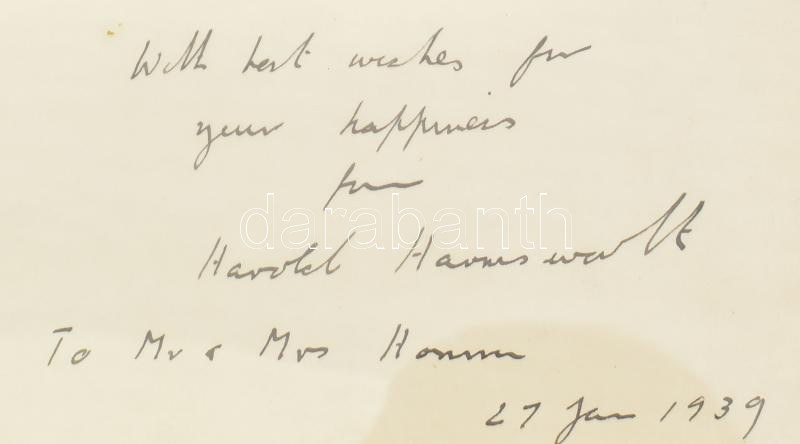 With best wishes for
your happiness
from
darabanth
Harold Harmsworth
To Mr & Mrs
27 Jan 1939